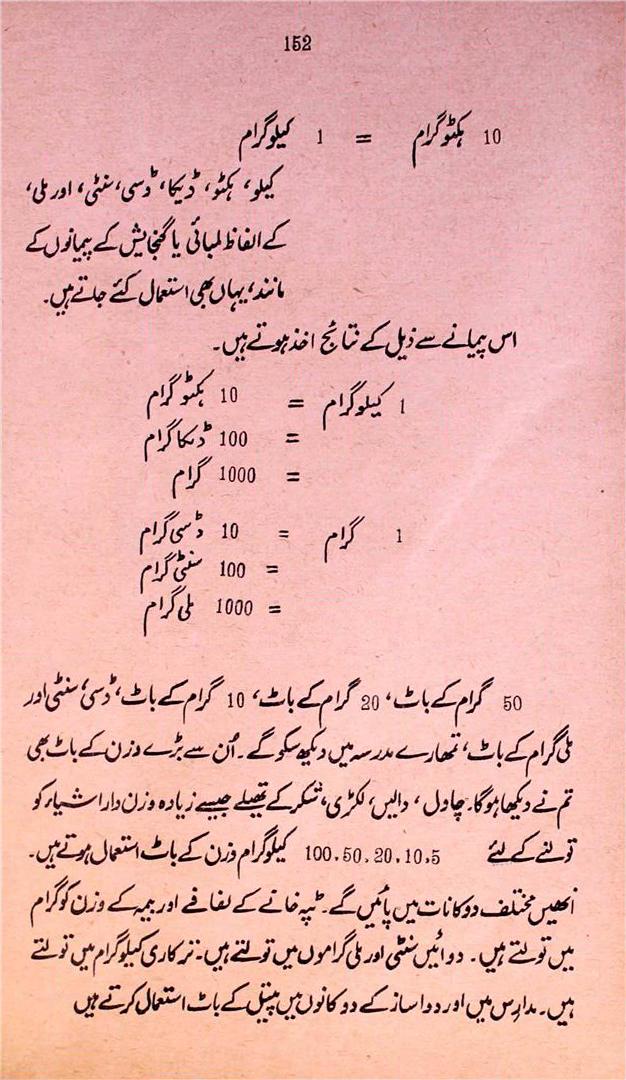 152
10 ہکٹوگرام = 1 کیلوگرام
کیلو، ہکٹو، ڈیکا، ڈسی، سنٹی، اور ملی،
کے الفاظ لمبائی یا گنجایش کے پیمانوں کے
مانند، یہاں بھی استعمال کئے جاتے ہیں۔
اس پیمانے سے ذیل کے نتائج اخذ ہوتے ہیں۔
1 کیلوگرام = 10 ہکٹوگرام
= 100 ڈیکاگرام
= 1000 گرام
1 گرام = 10 ڈسی گرام
= 100 سنٹی گرام
= 1000 ملی گرام
50 گرام کے باٹ، 20 گرام کے باٹ، 10 گرام کے باٹ، ڈسی، سنٹی اور
ملی گرام کے باٹ، تمھارے مدرسہ میں دیکھ سکو گے۔ اُن سے بڑے وزن کے باٹ بھی
تم نے دیکھا ہوگا۔ چاول، دالیں، لکڑی، شکر کے تھیلے جیسے زیادہ وزن دار اشیاء کو
تولنے کے لئے 5،10،20،50،100 کیلوگرام وزن کے باٹ استعمال ہوتے ہیں۔
انھیں مختلف دوکانات میں پائیں گے۔ ٹپہ خانے کے لفافے اور بیمہ کے وزن کو گرام
میں تولتے ہیں۔ دوائیں سنٹی اور ملی گراموں میں تولتے ہیں۔ ترکاری کیلوگرام میں تولتے
ہیں۔ مدارس میں اور دوا ساز کے دوکانوں میں پیتل کے باٹ استعمال کرتے ہیں